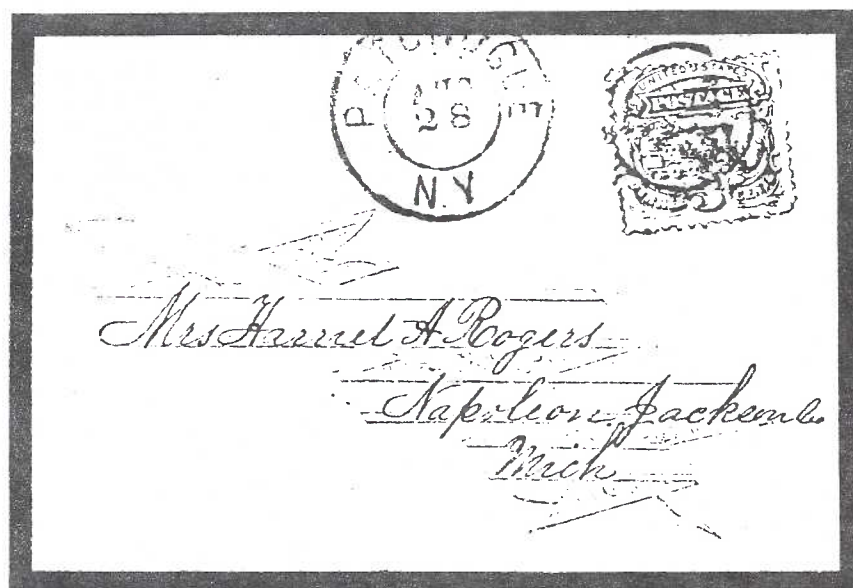 PATCHOGUE
AUG
28
N.Y
UNITED STATES
POSTAGE
3
Mrs Harriet A Rogers
Napoleon Jackson Co
Mich